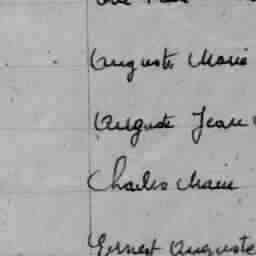 Auguste Marie
Auguste Jean
Charles Marie
Ernest Auguste